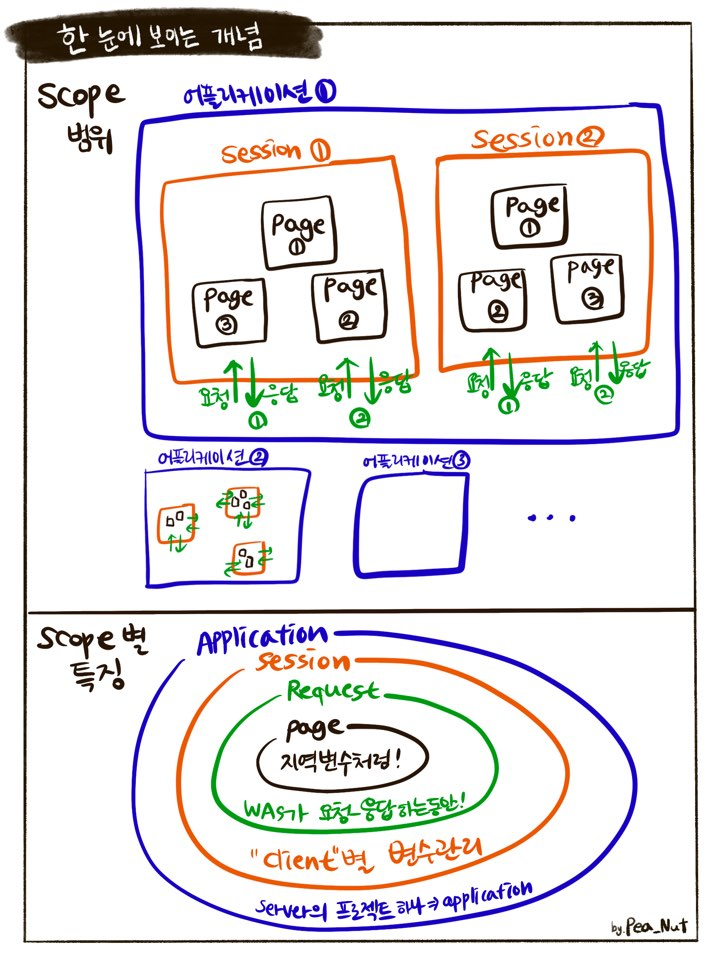 한 눈에 보이는 개념
Scope
범위
어플리케이션 ①
Session ①
Session ②
Page
①
Page
③
Page
②
Page
①
Page
②
Page
③
요청 응답
①
요청 응답
②
요청 응답
①
요청 응답
②
어플리케이션 ②
어플리케이션 ③
...
Scope 별
특징
Application
Session
Request
Page
지역변수처럼!
WAS가 요청~응답하는동안!
"Client"별 변수관리
Server의 프로젝트 하나 ⇒ application
by.Pea_Nut